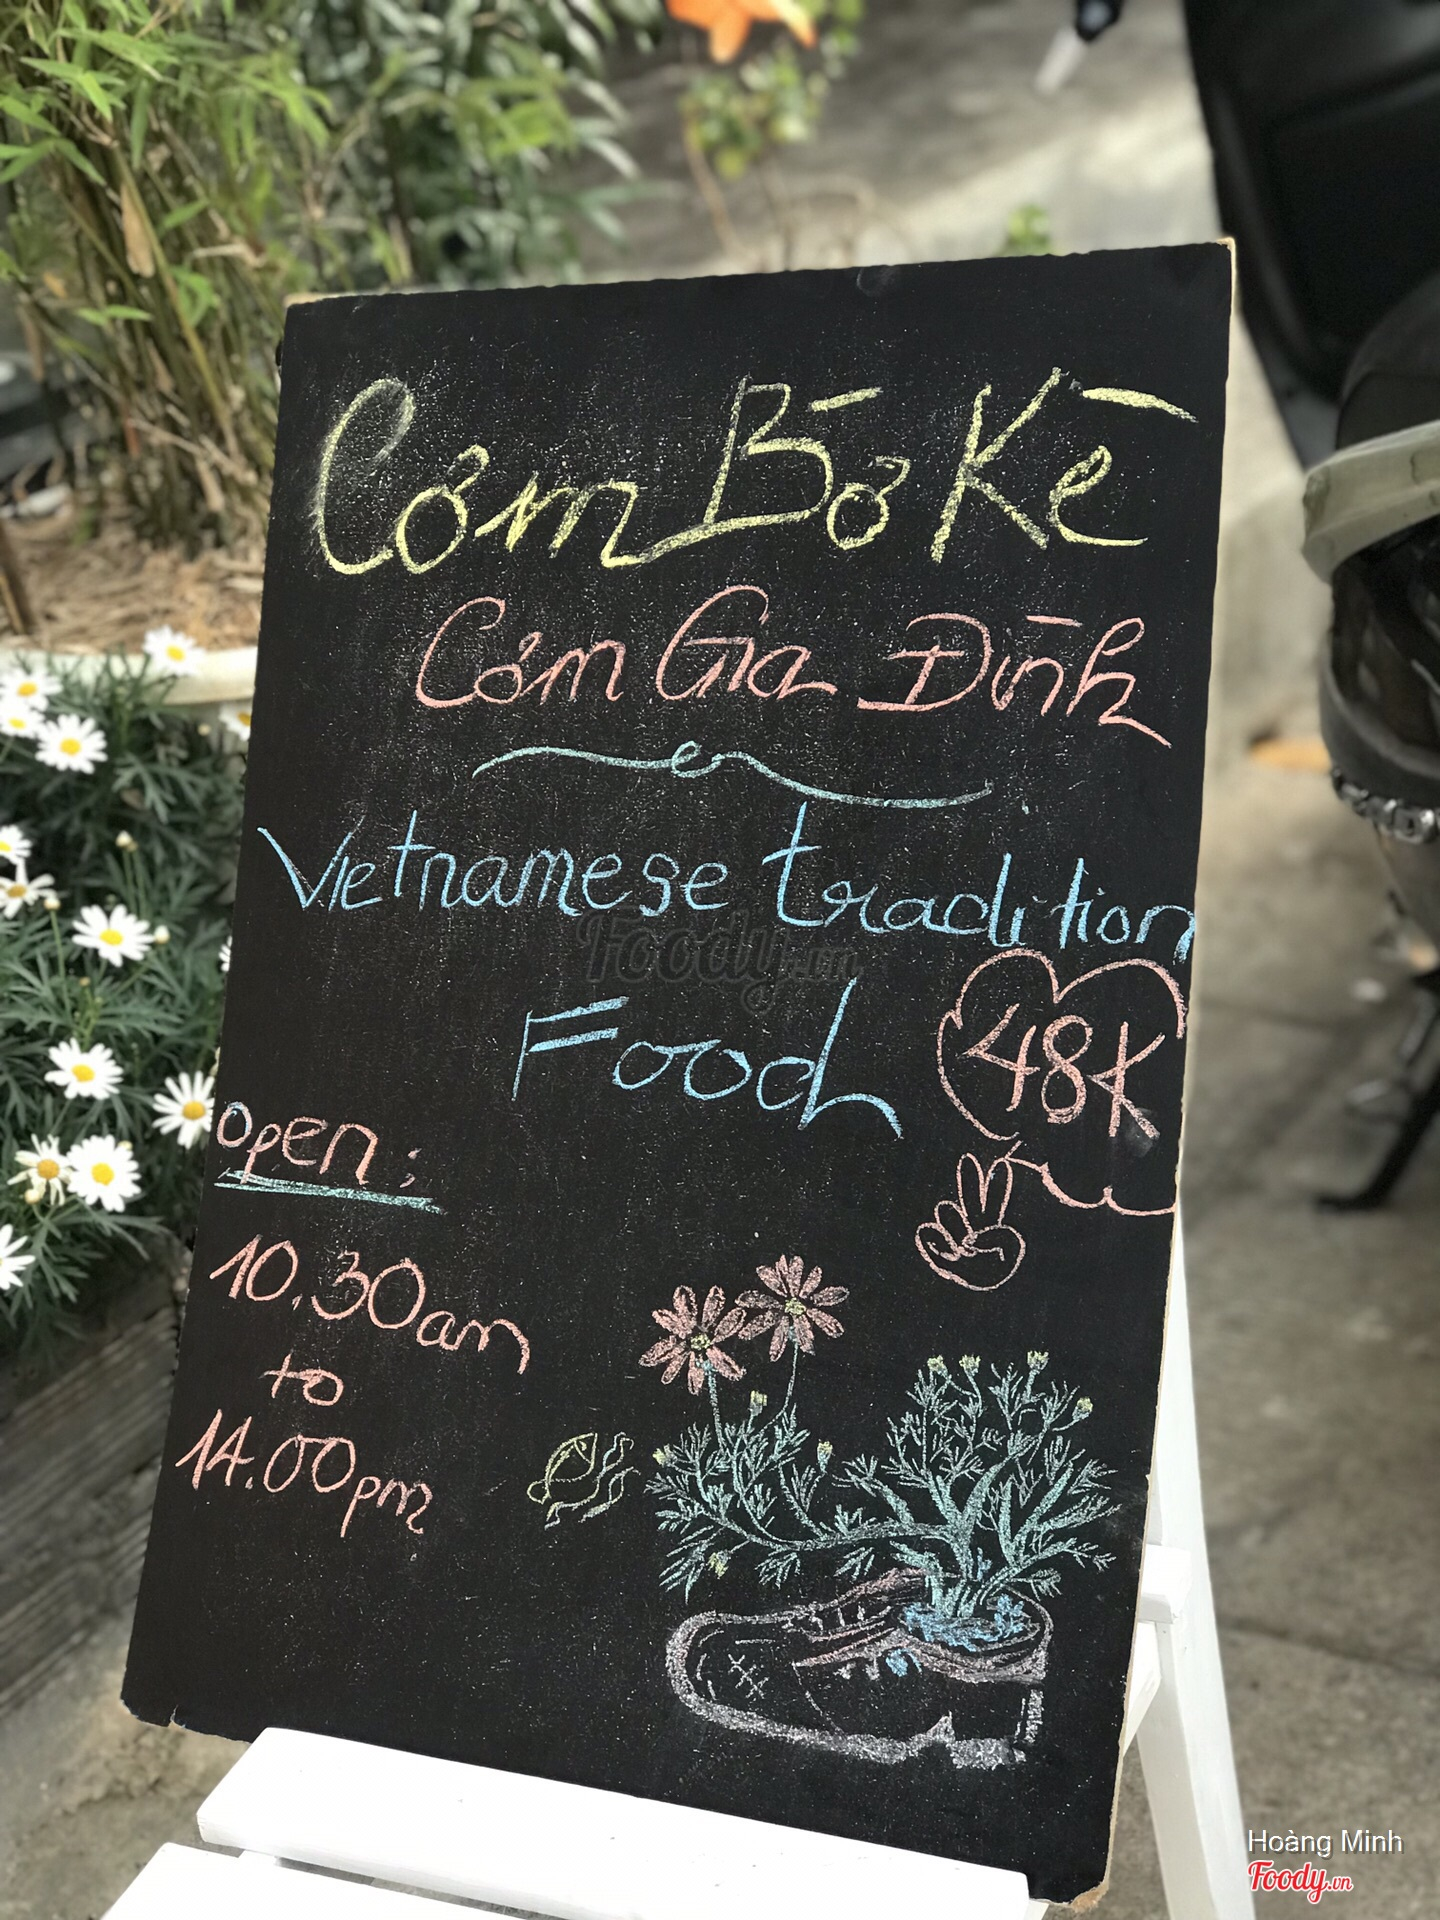 Cơm Bờ Kè
Cơm Gia Đình
Vietnamese tradition
Food
48K
open:
10.30am
to
14.00pm
Foody.vn
Hoàng Minh
Foody.vn